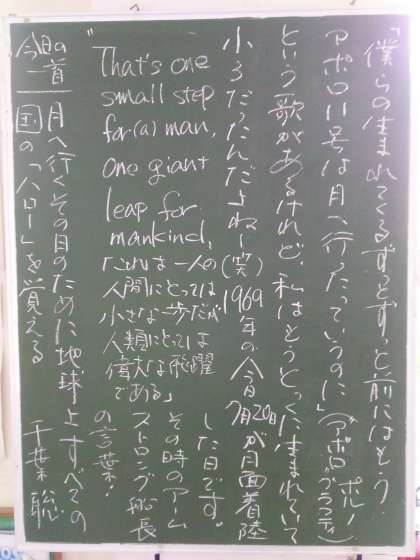 「僕らの生まれてくるずっとずっと前にはもう
アポロ11号は月へ行ったっていうのに」(アポロ、ポルノグラフィティ)
という歌があるけれど、私はもうとっくに生まれていて
小3だったんだよね〜(笑)1969年の今日7月20日が月面着陸
した日です。
その時のアーム
ストロング船長
の言葉・
"That's one
small step
for(a) man,
one giant
leap for
mankind,
「これは一人の
人間にとっては
小さな一歩だが
人類にとっては
偉大な飛躍
である」
今日の一首
月へ行くその日のために地球上すべての
国の「ハロー」を覚える 千葉聡